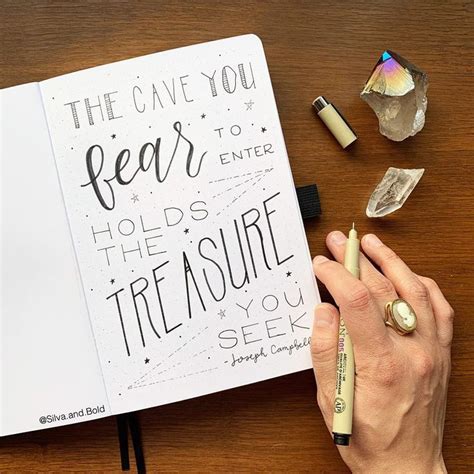 THE CAVE YOU
fear TO
ENTER
HOLDS
THE
TREASURE
YOU
SEEK
-Joseph Campbell
@Silva.and.Bold